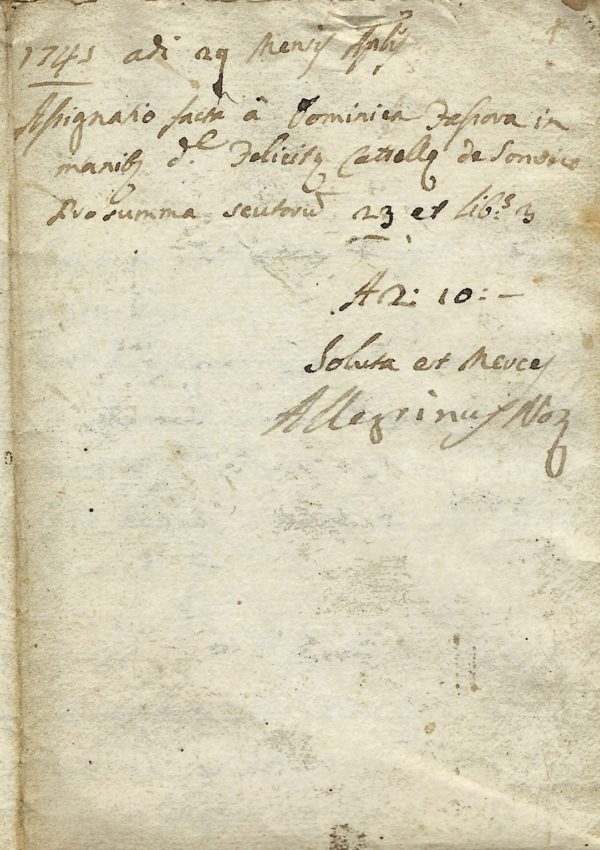 1741 adi 29 Mensis Aplis
Assignatio facta à Dominica in
manibq d.e Felicitq Cattellq de Sonvico
Pro summa scutorū 23 et lib.s 3
A 2: 10: –
Soluta et Merces
Allegrinus Nor